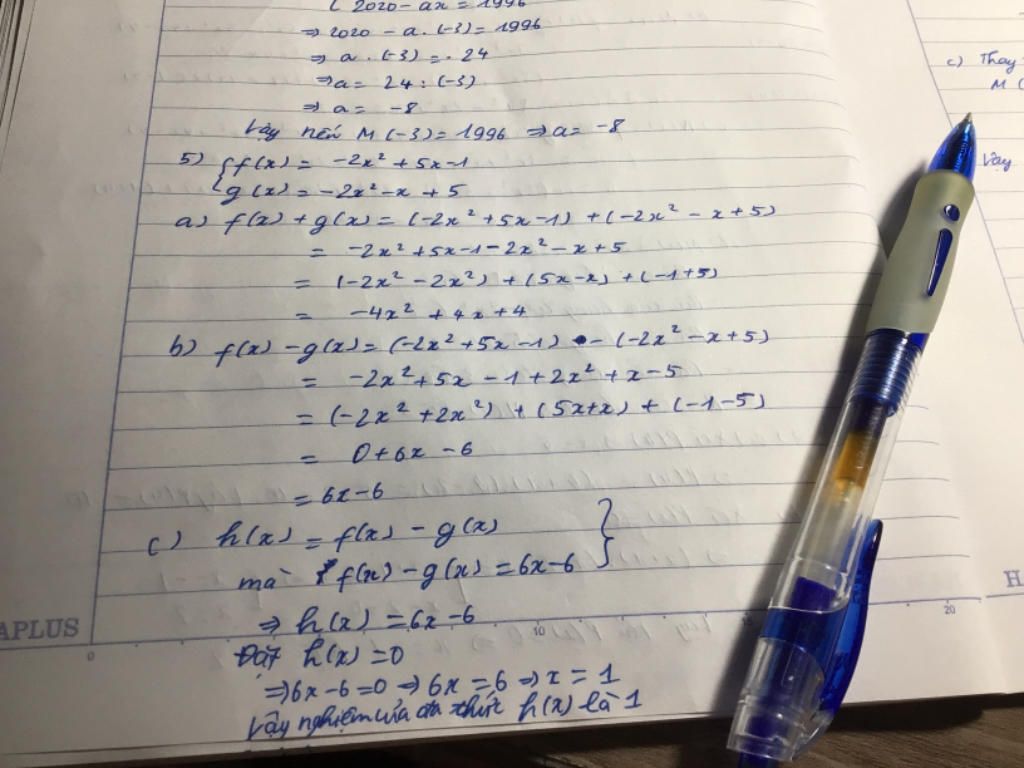 ( 2020 - ax = 1996
⇒ 2020 - a . (-3) = 1996
⇒ a . (-3) = 24
⇒ a = 24 : (-3)
⇒ a = -8
Vậy nếu M(-3) = 1996 ⇒ a = -8
5) { f(x) = -2x² + 5x - 1
g(x) = -2x² - x + 5
a) f(x) + g(x) = (-2x² + 5x - 1) + (-2x² - x + 5)
= -2x² + 5x - 1 - 2x² - x + 5
= (-2x² - 2x²) + (5x - x) + (-1 + 5)
= -4x² + 4x + 4
b) f(x) - g(x) = (-2x² + 5x - 1) - (-2x² - x + 5)
= -2x² + 5x - 1 + 2x² + x - 5
= (-2x² + 2x²) + (5x + x) + (-1 - 5)
= 0 + 6x - 6
= 6x - 6
c) h(x) = f(x) - g(x) }
mà f(x) - g(x) = 6x - 6
⇒ h(x) = 6x - 6
Đặt h(x) = 0
⇒ 6x - 6 = 0 ⇒ 6x = 6 ⇒ x = 1
Vậy nghiệm của đa thức h(x) là 1
c) Thay
M (
Vậy
APLUS
0
10
15
20
H